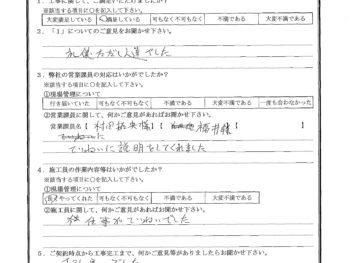 1. 工事に関して、ご満足いただけましたか？
※該当する項目に○を記入して下さい。
大変満足している 満足している 可もなく不可もなく 不満である 大変不満である
2. 「1」についてのご意見をお聞かせ下さい。
礼儀正しい人達でした
3. 弊社の営業課員の対応はいかがでしたか？
※該当する項目に○を記入して下さい。
①現場管理について
行き届いていた 可もなく不可もなく 不満である 大変不満である 一度も会わなかった
②営業課員に関して、何かご意見があればお聞かせ下さい。
営業課員名【 村田 様】【 福井様 】
ていねいに説明をしてくれました
4. 施工員の作業内容等はいかがでしたか？
※該当する項目に○を記入して下さい。
①現場管理について
良くやってくれた 可もなく不可もなく 不満である 大変不満である
②施工員に関して、何かご意見があればお聞かせ下さい。
仕事がていねいでした
5. ご契約時点から工事完工まで、何かご意見等がありましたらお聞かせ下さい。